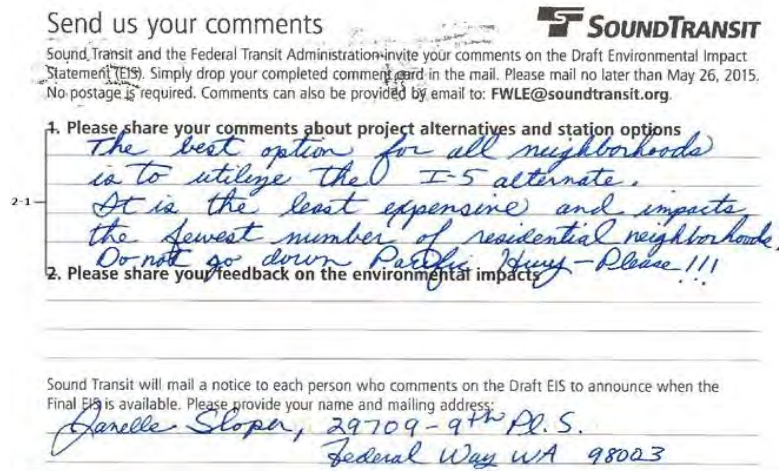 Send us your comments
SOUNDTRANSIT
Sound Transit and the Federal Transit Administration invite your comments on the Draft Environmental Impact
Statement (EIS). Simply drop your completed comment card in the mail. Please mail no later than May 26, 2015.
No postage is required. Comments can also be provided by email to: FWLE@soundtransit.org.
1. Please share your comments about project alternatives and station options
The best option for all neighborhoods
is to utilize the I-5 alternate.
2-1
It is the least expensive and impacts
the fewest number of residential neighborhoods.
Do not go down Pacific Huwy - Please!!!
2. Please share your feedback on the environmental impacts
Sound Transit will mail a notice to each person who comments on the Draft EIS to announce when the
Final EIS is available. Please provide your name and mailing address:
Janelle Sloper, 29709-9th Pl. S.
Federal Way WA 98003